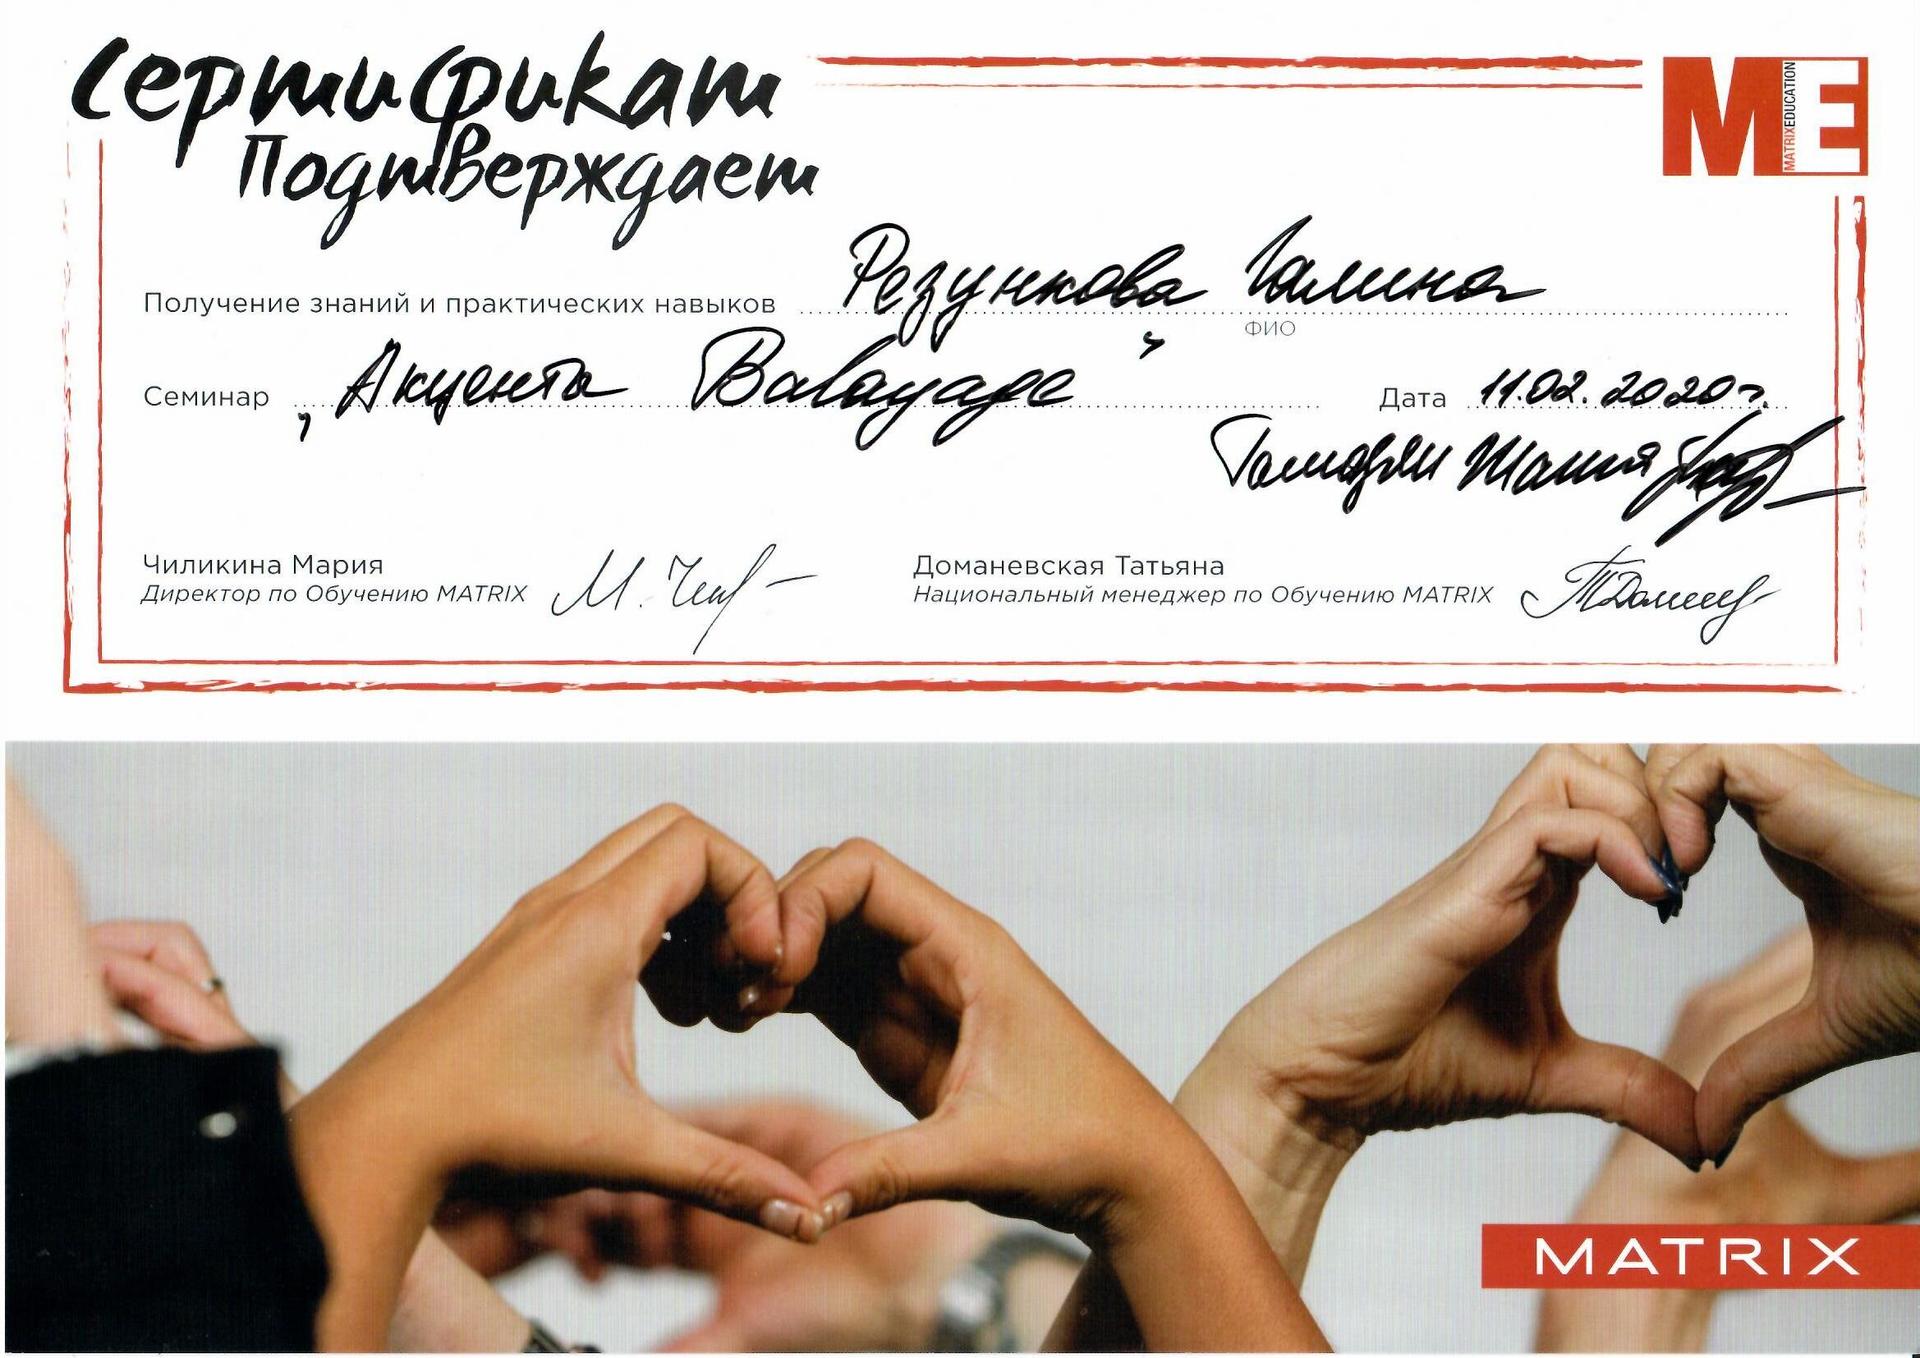 Сертификат
Подтверждает
ME
MATRIXEDUCATION
Получение знаний и практических навыков Резункова Галина
ФИО
Семинар „Акценты Balayage”
Дата 11.02.2020г.
Чиликина Мария
Директор по Обучению MATRIX
М. Чил
Доманевская Татьяна
Национальный менеджер по Обучению MATRIX
MATRIX